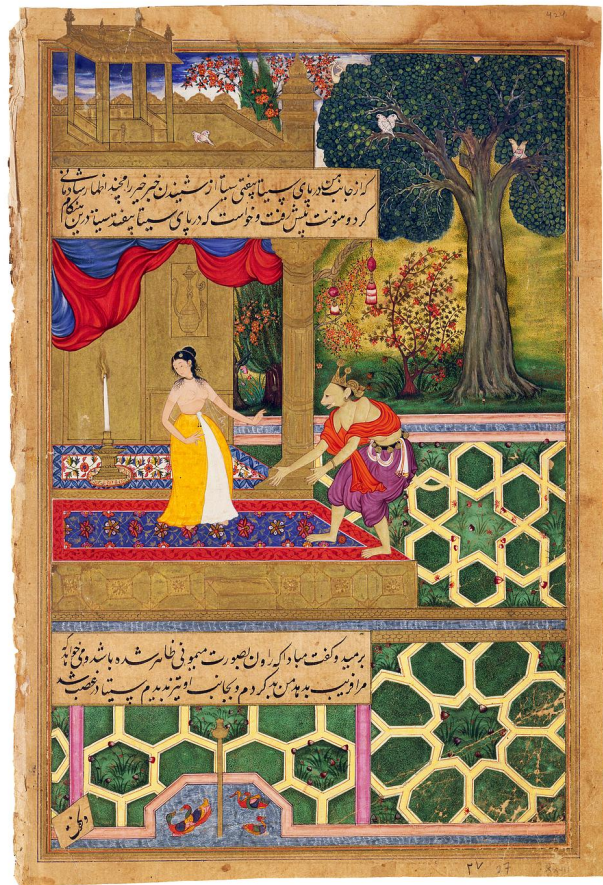 که از جانب من در پای سیتا بیفتی سیتا از شنیدن خبر خیر رامچند اظهار شادمانی
کرد و هنونت پیش رفت و خواست که در پای سیتا بیفتد سیتا درین هنگام
برمید و گفت مبادا که راون بصورت میمونی ظاهر شده باشد و می خواهد که
مرا فریب بدهد من و بجانب او تیز ندیدم سیتا در غضب شد
و گفت
۲۷ 27